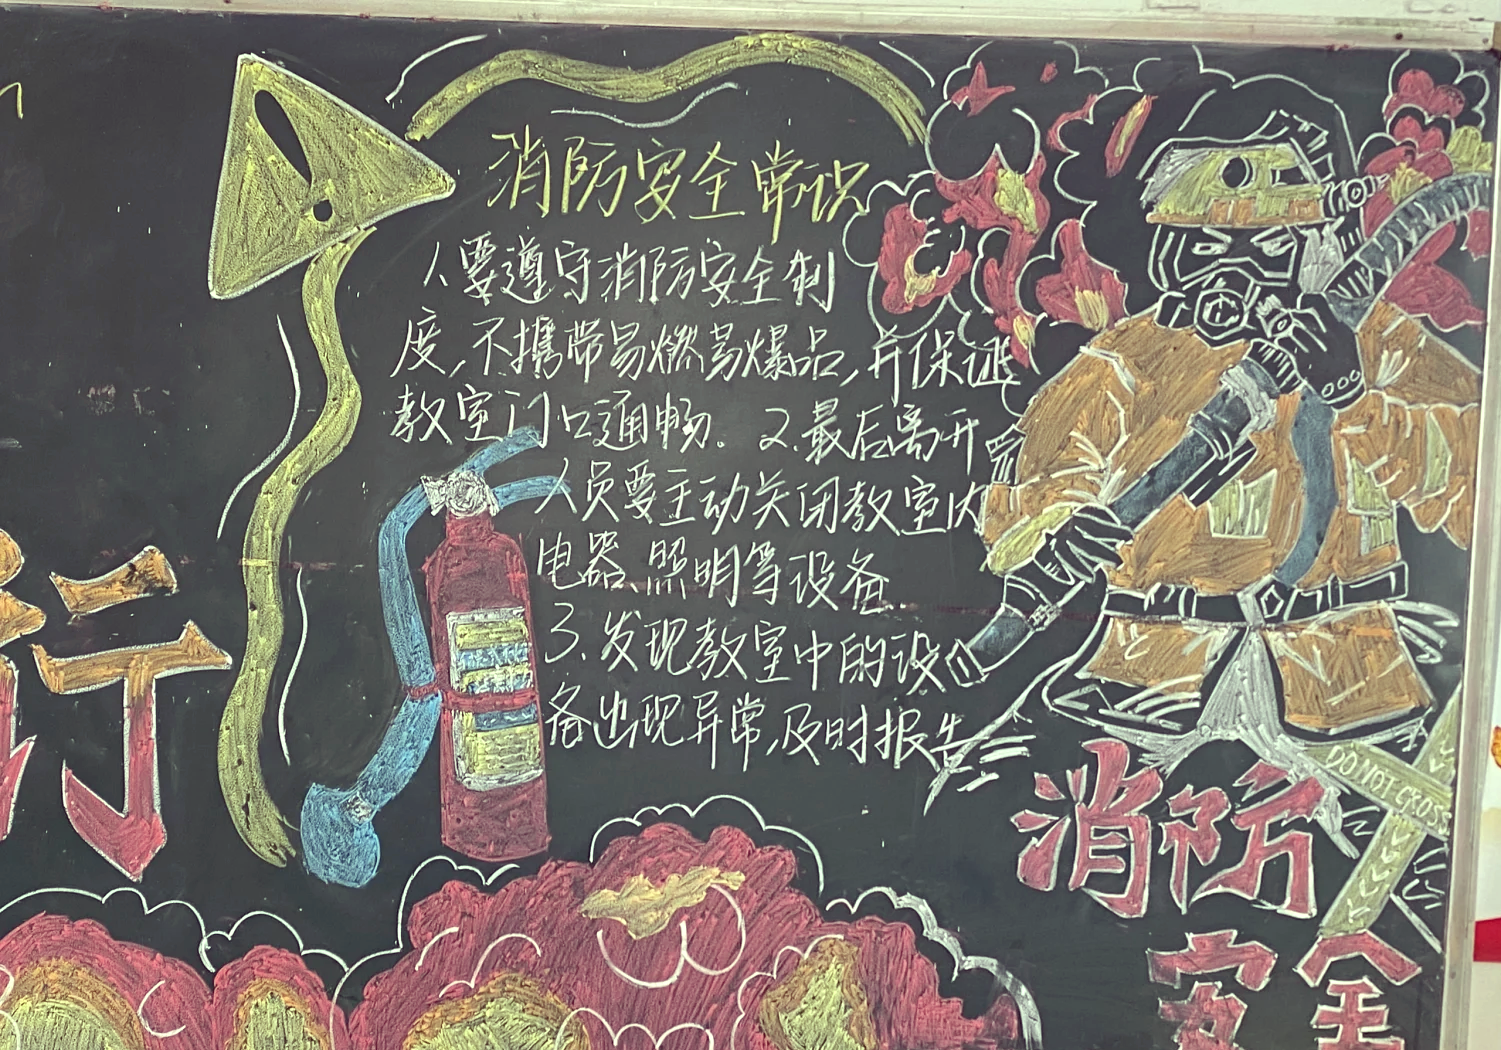 消防安全常识
1.要遵守消防安全制
度,不携带易燃易爆品,并保证
教室门口通畅. 2.最后离开
人员要主动关闭教室内
电器 照明等设备
3.发现教室中的设
备出现异常,及时报告
行
DO NOT CROSS
消防
安全